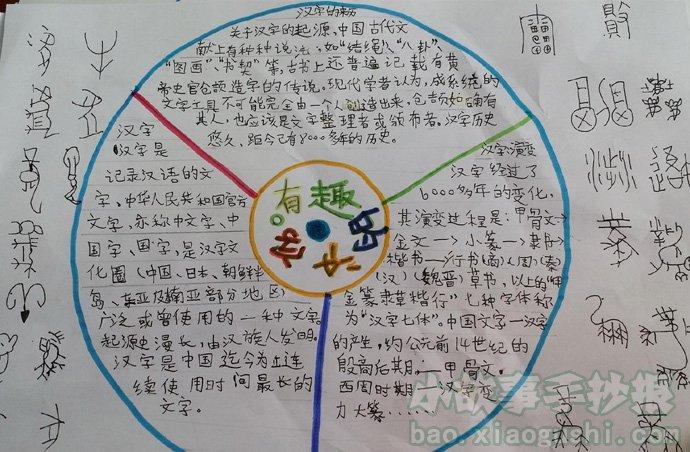 汉字的来历
关于汉字的起源，中国古代文
献上有种种说法，如"结绳"、"八卦"、
"图画"、"书契"等，古书上还普遍记载有黄
帝史官仓颉造字的传说。现代学者认为，成系统的
文字工具不可能完全由一个人创造出来，仓颉如确有
其人，也应该是文字整理者或颁布者。汉字历史
悠久，距今已有8000多年的历史。
汉字
汉字是
记录汉语的文
字，中华人民共和国官方
文字，亦称中文字、中
国字、国字，是汉字文
化圈（中国、日本、朝鲜半
岛、东亚及东南亚部分地区）
广泛或曾使用的一种文字
起源史漫长，由汉族人发明。
汉字是中国迄今为止连
续使用时间最长的
文字。
汉字演变
汉字经过了
6000多年的变化，
其演变过程是：甲骨文→
金文→小篆→隶书→
楷书→行书（商）（周）（秦）
（汉）（魏晋）草书，以上的"甲
金篆隶草楷行"七种字体称
为"汉字七体"。中国文字—汉字
的产生，约公元前14世纪的
殷商后期，—甲骨文。
西周时期
力大篆……
有趣
的
汉字
小故事手抄报
bao.xiaogushi.com